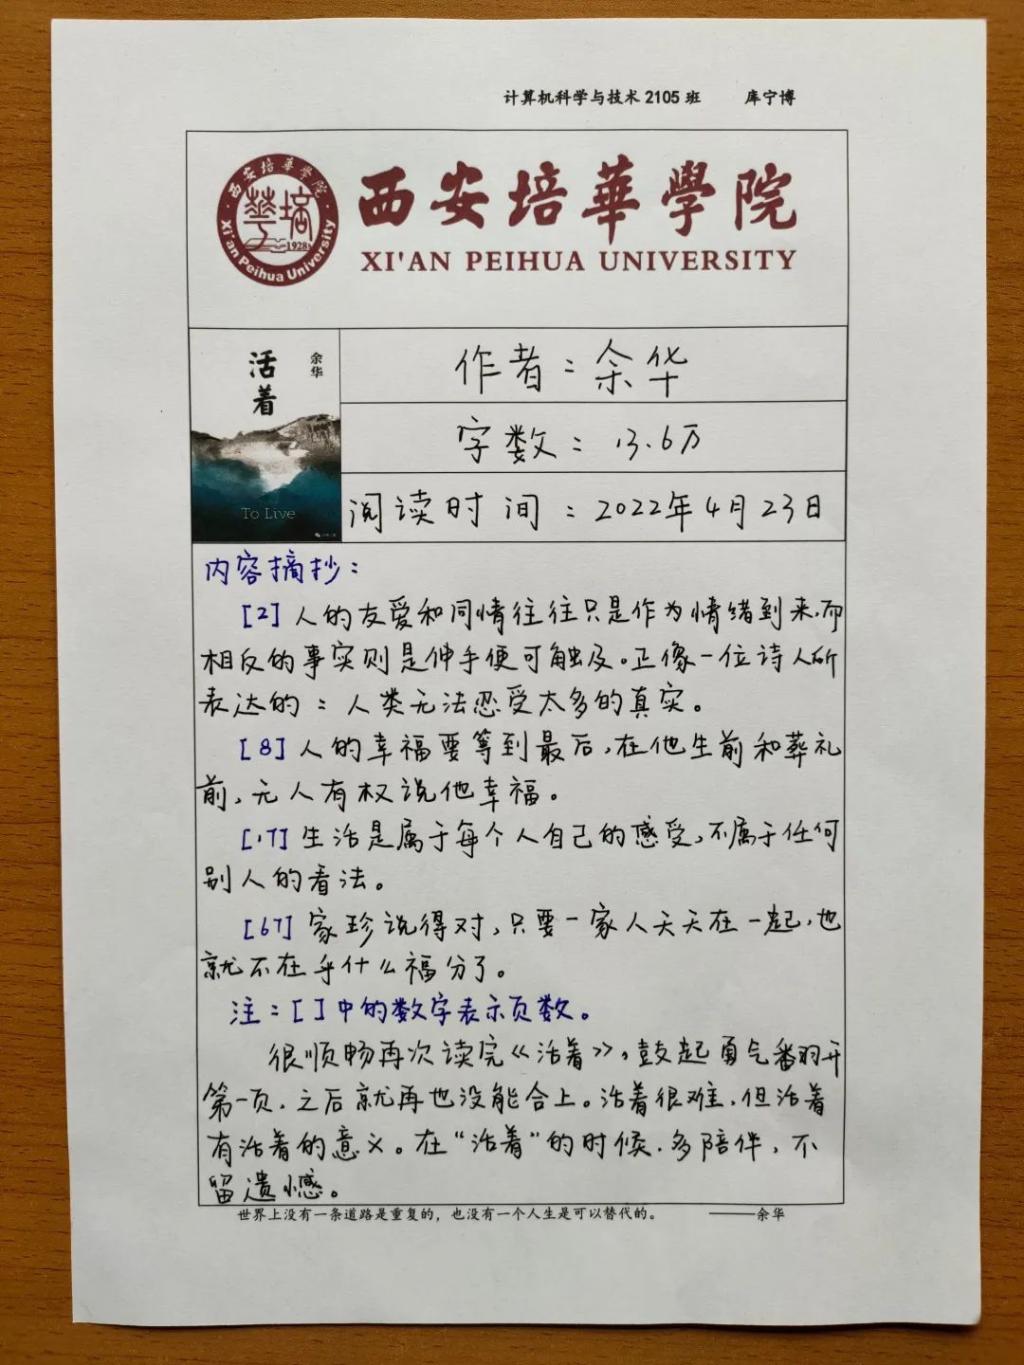 计算机科学与技术 2105 班 库宁博
西安培華學院
华培
1928
Xi'an Peihua University
西安培華學院
XI'AN PEIHUA UNIVERSITY
活着
余华
To Live
作者：余华
字数：13.6万
阅读时间：2022年4月23日
内容摘抄：
[2] 人的友爱和同情往往只是作为情绪到来，而
相反的事实则是伸手便可触及。正像一位诗人所
表达的：人类无法忍受太多的真实。
[8] 人的幸福要等到最后，在他生前和葬礼
前，无人有权说他幸福。
[17] 生活是属于每个人自己的感受，不属于任何
别人的看法。
[67] 家珍说得对，只要一家人天天在一起，也
就不在乎什么福分了。
注：[ ]中的数字表示页数。
很顺畅再次读完《活着》，鼓起勇气翻开
第一页，之后就再也没能合上。活着很难，但活着
有活着的意义。在“活着”的时候，多陪伴，不
留遗憾。
世界上没有一条道路是重复的，也没有一个人生是可以替代的。 ———余华